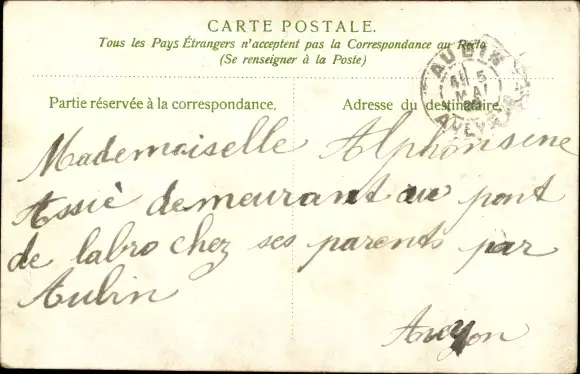 CARTE POSTALE.
Tous les Pays Étrangers n'acceptent pas la Correspondance au Recto
(Se renseigner à la Poste)
Partie réservée à la correspondance.
Adresse du destinataire.
AUBIN
5
MAI
AVEYRON
Mademoiselle Alphonsine
Assiè demeurant au pont
de labro chez ses parents par
Aubin
Aveyon